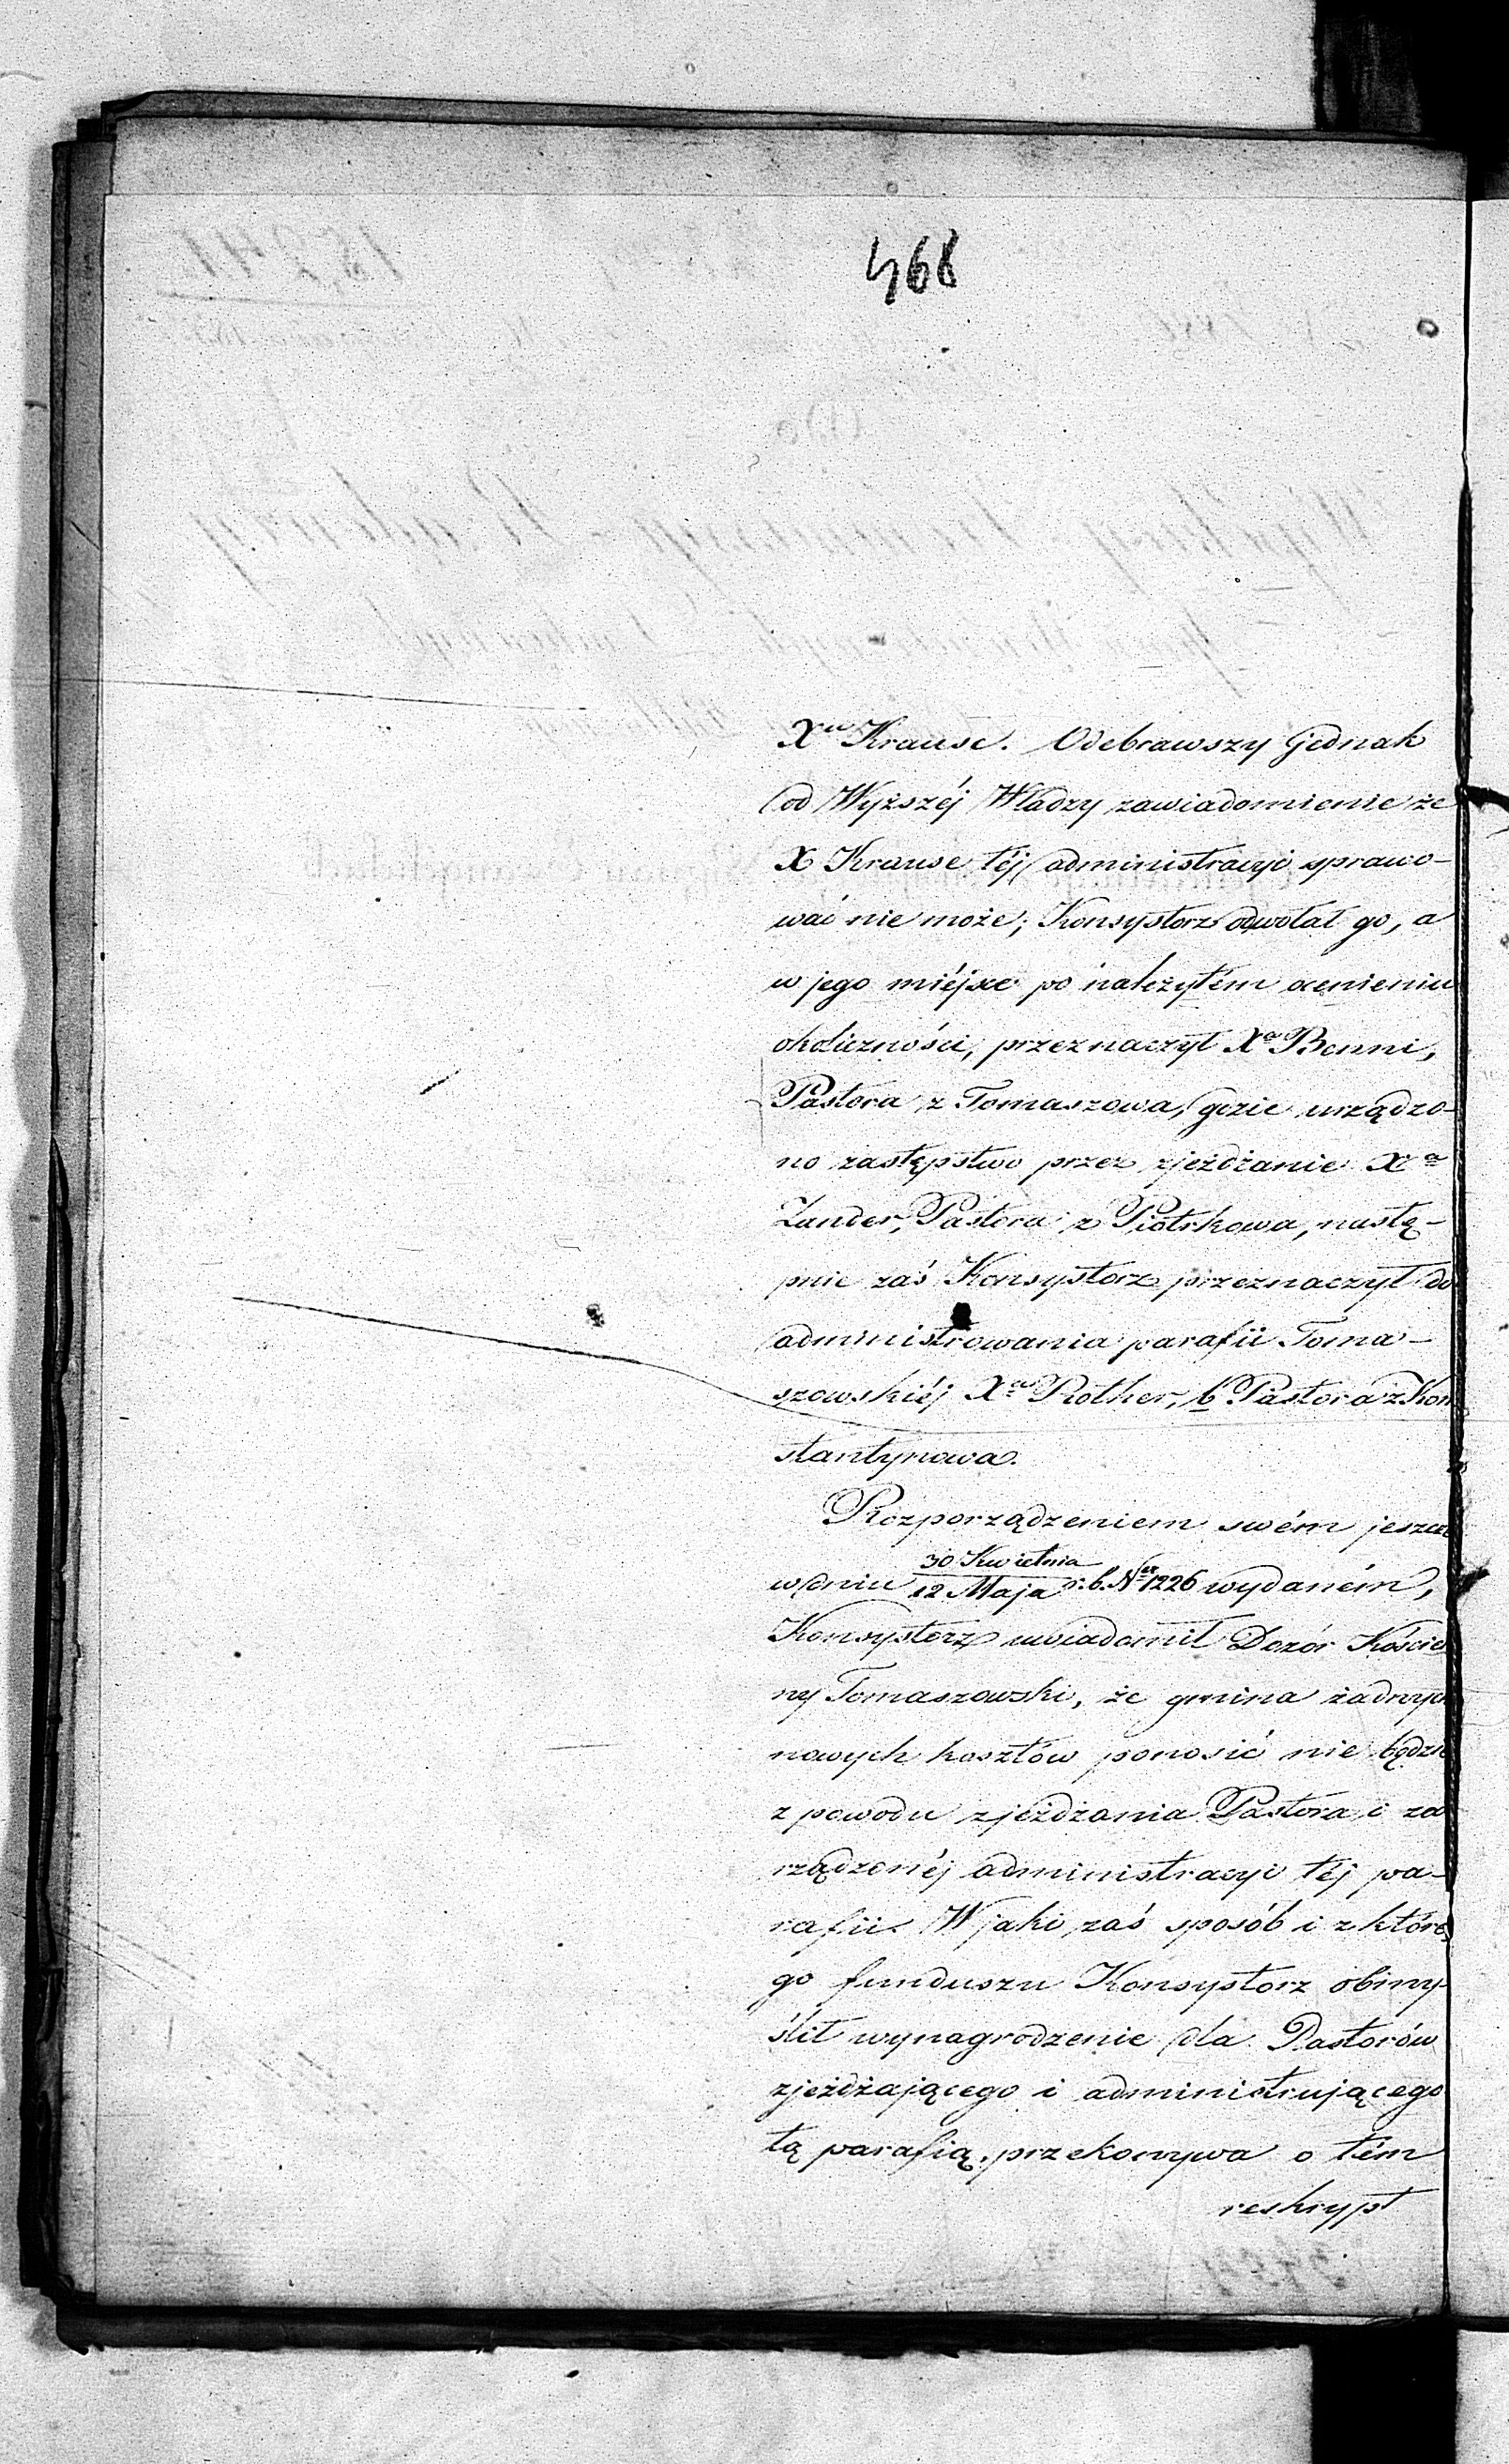 468
Xa Krause. Odebrawszy jednak
od Wyższéj Władzy zawiadomienie że
X Krause téj administracyi sprawo-
wać nie może; Konsystorz odwołał go, a
w jego miéjsce po należytém ocenieniu
okoliczności, przeznaczył Xa Benni,
Pastora z Tomaszowa, gdzie urządzo-
no zastępstwo przez zjeżdżanie Xa
Zander, Pastora z Piotrkowa, nastę-
pnie zaś Konsystorz przeznaczył do
administrowania parafii Toma-
szowskiéj Xa Rother, b Pastora z Kon
stantynowa.
Rozporządzeniem swém jeszcze
w dniu 30 Kwietnia / 12 Maja r. b. Nr 1226 wydaném,
Konsystorz uwiadomił Dozór Koście
ny Tomaszowski, że gmina żadnych
nowych kosztów ponosić nie będzie
z powodu zjeżdżania Pastora i za
rządzonéj administracyi téj pa-
rafii. W jaki zaś sposób i z które
go funduszu Konsystorz obmy-
ślił wynagrodzenie dla Pastorów
zjeżdżającego i administrującego
tą parafią, przekonywa o tém
reskrypt